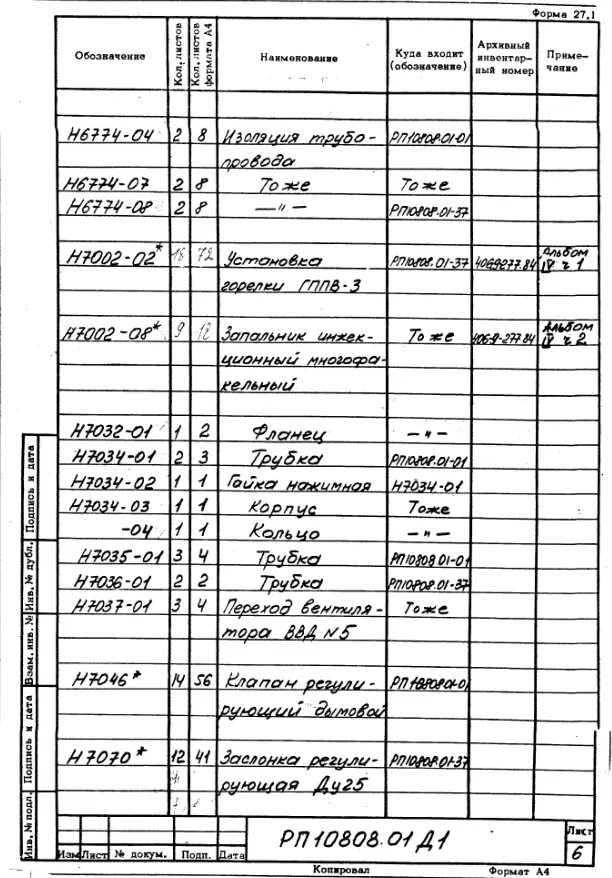 Форма 27.1
Обозначение Кол. листов Кол. листов формата А4 Наименование Куда входит (обозначение) Архивный инвентарный номер Примечание
Н6774-04 2 8 Изоляция трубо- РП10808.01-01
провода
Н6774-07 2 8 То же То же
Н6774-08 2 8 —"— РП10808.01-37
Н7002-02* 18 72 Установка РП10808.01-37 Альбом IV ч 1
горелки ГППВ-3
Н7002-08* 9 Запальник инжек- То же Альбом IV ч 2
ционный многофа-
кельный
Н7032-01 1 2 Фланец —"—
Н7034-01 2 3 Трубка РП10808.01-01
Н7034-02 1 1 Гайка нажимная Н7034-01
Н7034-03 1 1 Корпус То же
-04 1 1 Кольцо —"—
Н7035-01 3 4 Трубка РП10808.01-01
Н7036-01 2 2 Трубка РП10808.01-37
Н7037-01 3 4 Переход вентиля- То же
тора ВВД №5
Н7046* 14 56 Клапан регули- РП10808.01-01
рующий дымовой
Н7070* 12 41 Заслонка регули- РП10808.01-37
рующая Ду25
Инв. № подл. Подпись и дата Взам. инв. № Инв. № дубл. Подпись и дата
РП10808.01Д1
Лист
6
Изм Лист № докум. Подп. Дата
Копировал Формат А4